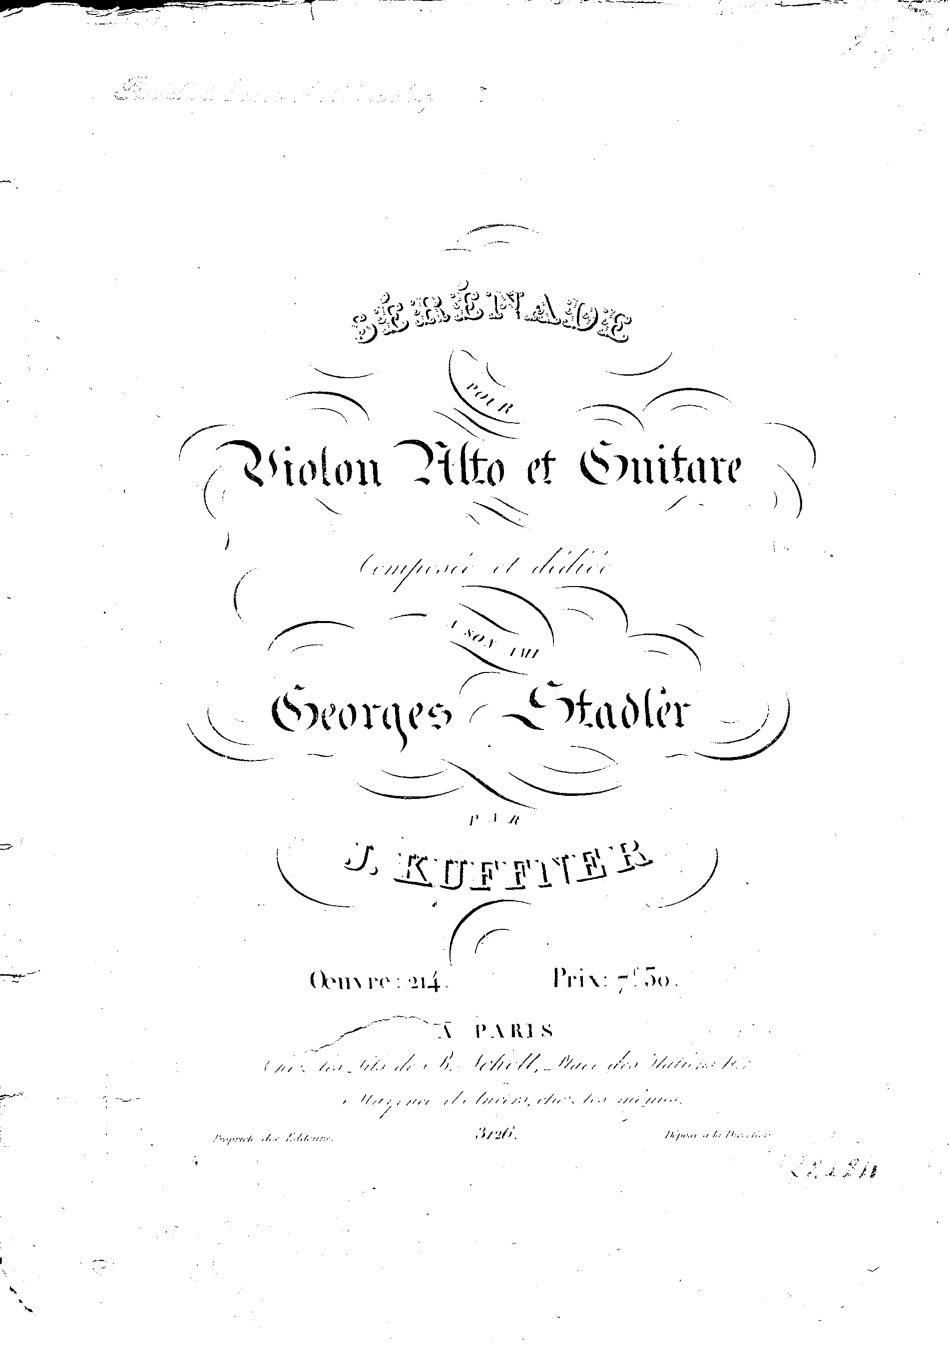 SÉRÉNADE
POUR
Violon Alto et Guitare
Composée et dédiée
A SON AMI
Georges Stadler
PAR
J. KUFFNER
Œuvre: 214. Prix: 7f 50.
À PARIS
Chez les fils de B. Schott, Place des Italiens
Mayence et Anvers, chez les mêmes.
Propriété des Editeurs. 3126. Déposé à la Direction